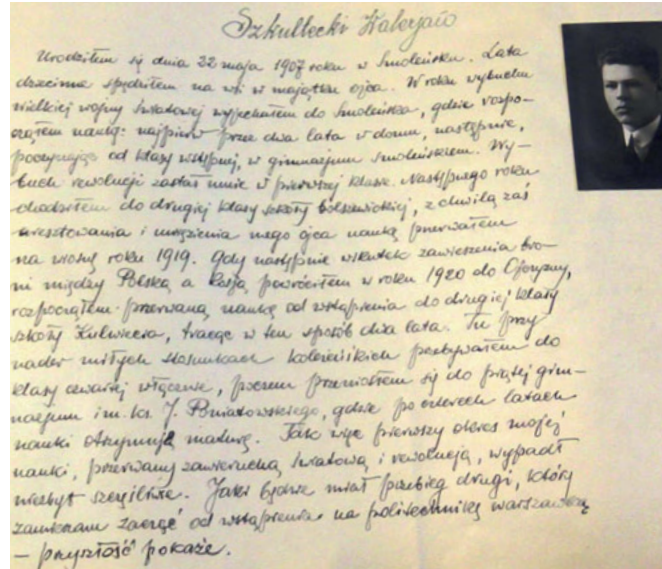 Szkullecki Walerjan
Urodziłem się dnia 22 maja 1907 roku w Smoleńsku. Lata
dziecinne spędziłem na wsi w majątku ojca. W roku wybuchu
wielkiej wojny światowej wyjechałem do Smoleńska, gdzie rozpo-
cząłem naukę: najpierw przez dwa lata w domu, następnie,
poczynając od klasy wstępnej, w gimnazjum smoleńskiem. Wy-
buch rewolucji zastał mnie w pierwszej klasie. Następnego roku
chodziłem do drugiej klasy szkoły bolszewickiej, z chwilą zaś
aresztowania i uwięzienia mego ojca naukę przerwałem
na wiosnę roku 1919. Gdy następnie wskutek zawieszenia bro-
ni między Polską a Rosją powróciłem w roku 1920 do Ojczyzny,
rozpocząłem przerwaną naukę od wstąpienia do drugiej klasy
szkoły Kulwiecia, tracąc w ten sposób dwa lata. Tu przy
nader miłych stosunkach koleżeńskich przebywałem do
klasy czwartej włącznie, poczem przeniosłem się do piątej gim-
nazjum im. ks. J. Poniatowskiego, gdzie po czterech latach
nauki otrzymuję maturę. Tak więc pierwszy okres mojej
nauki, przerwany zawieruchą światową i rewolucją, wypadł
niezbyt szczęśliwie. Jaki będzie miał przebieg drugi, który
zamierzam zacząć od wstąpienia na politechnikę warszawską
– przyszłość pokaże.